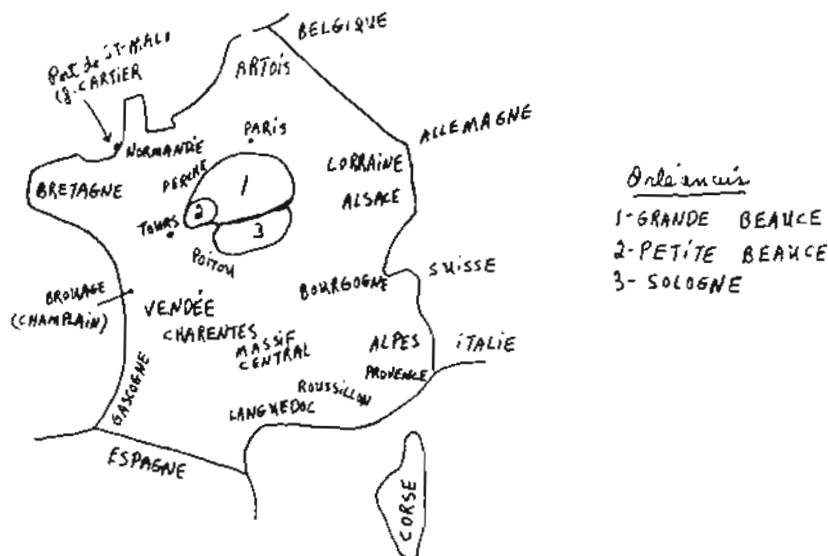 BELGIQUE
Port de ST-MALO
(J. CARTIER
ARTOIS
ALLEMAGNE
PARIS
NORMANDIE
LORRAINE
PERCHE
1
BRETAGNE
ALSACE
2
TOURS
3
POITOU
SUISSE
BOURGOGNE
BROUAGE
(CHAMPLAIN)
VENDÉE
CHARENTES
MASSIF
CENTRAL
ALPES
ITALIE
PROVENCE
ROUSSILLON
LANGUEDOC
GASCOGNE
ESPAGNE
CORSE
Orléanais
1-GRANDE BEAUCE
2-PETITE BEAUCE
3- SOLOGNE